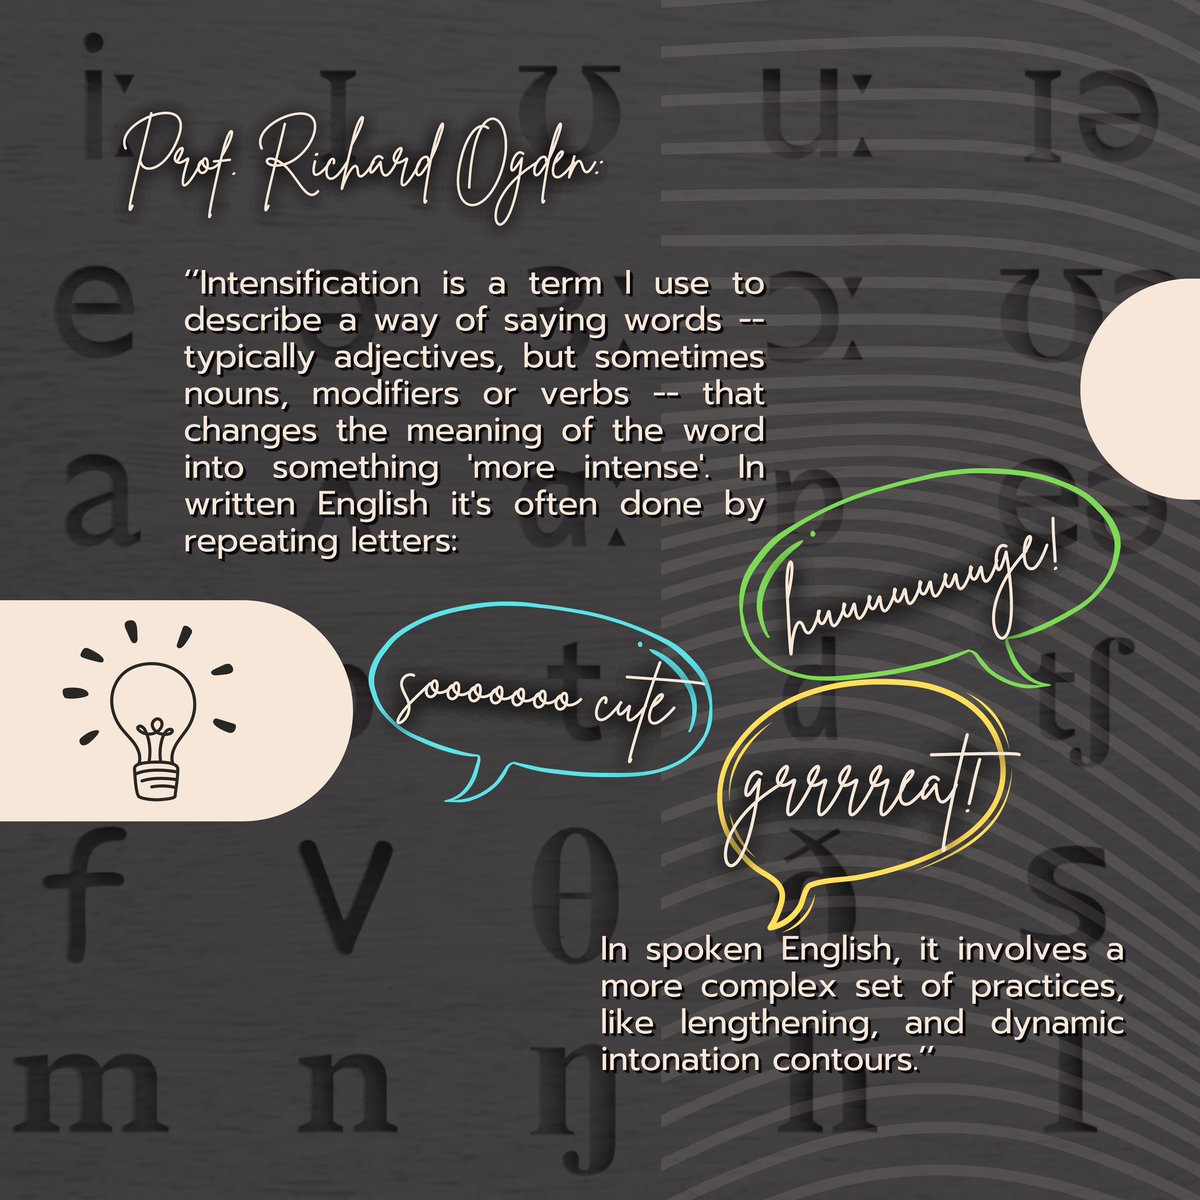 Prof. Richard Ogden:
‘‘Intensification is a term I use to
describe a way of saying words --
typically adjectives, but sometimes
nouns, modifiers or verbs -- that
changes the meaning of the word
into something 'more intense'. In
written English it's often done by
repeating letters:
huuuuuuuge!
sooooooo cute
grrrrreat!
In spoken English, it involves a
more complex set of practices,
like lengthening, and dynamic
intonation contours.’’
iː ɪ ʊ uː ɪə
e ə ɔː ʊ
a ɑː ɒ eə
t d tʃ
f v θ ð s
m n ŋ h l